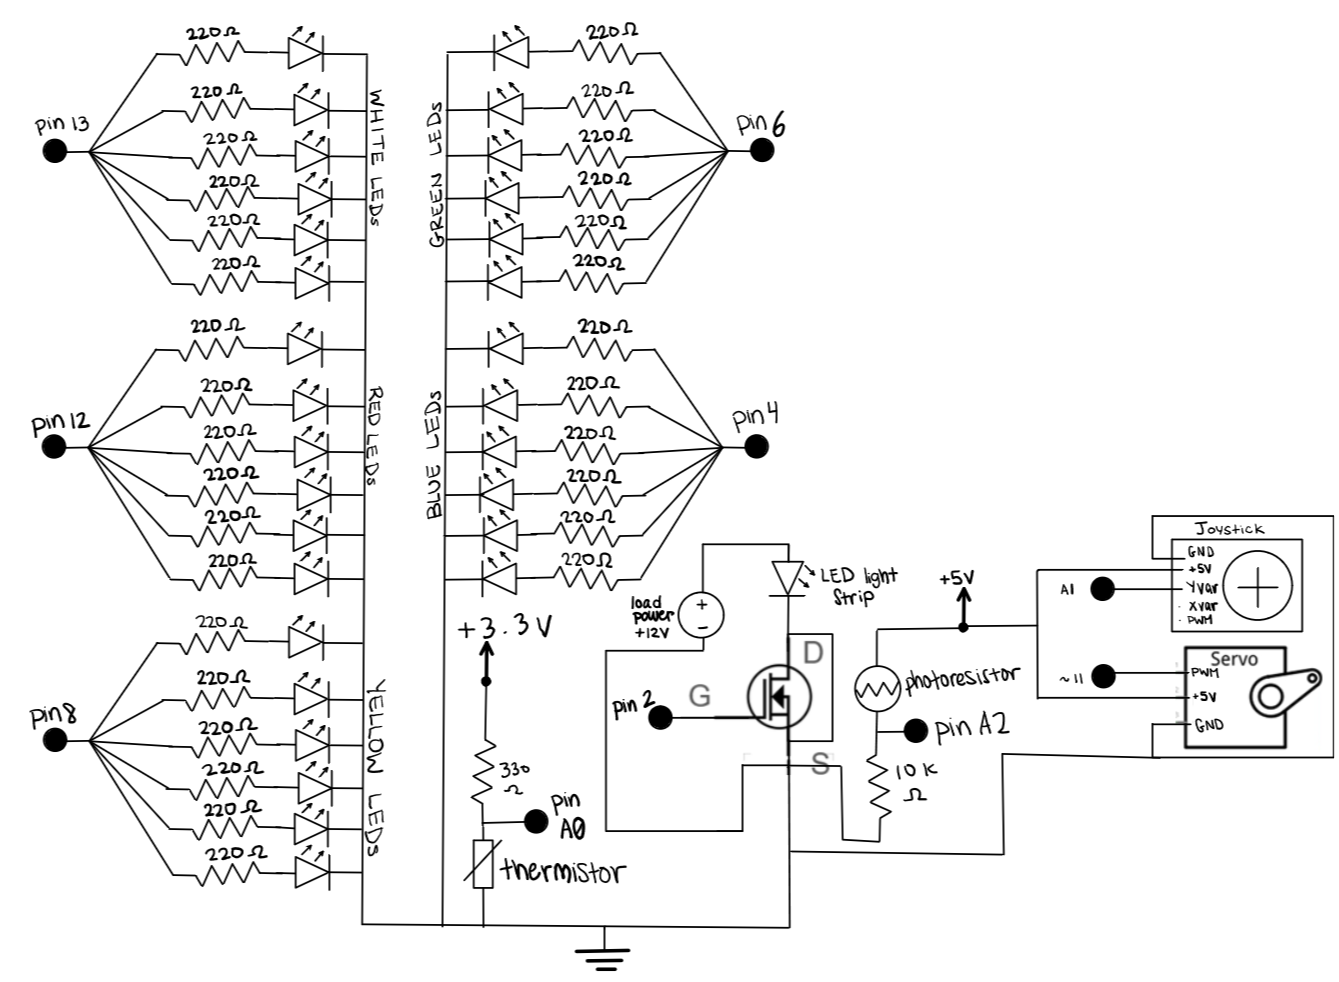 220Ω
220Ω
220Ω
220Ω
220Ω
220Ω
Pin 13
WHITE LEDs
220Ω
220Ω
220Ω
220Ω
220Ω
220Ω
Pin 6
GREEN LEDs
220Ω
220Ω
220Ω
220Ω
220Ω
220Ω
Pin 12
RED LEDs
220Ω
220Ω
220Ω
220Ω
220Ω
220Ω
Pin 4
BLUE LEDs
220Ω
220Ω
220Ω
220Ω
220Ω
220Ω
Pin 8
YELLOW LEDs
+3.3V
330
Ω
pin
A0
thermistor
load
power
+12V
+
−
LED light
Strip
D
G
S
pin 2
+5V
photoresistor
pin A2
10 K
Ω
Joystick
GND
+5V
Yvar
Xvar
PWM
A1
Servo
PWM
+5V
GND
~11